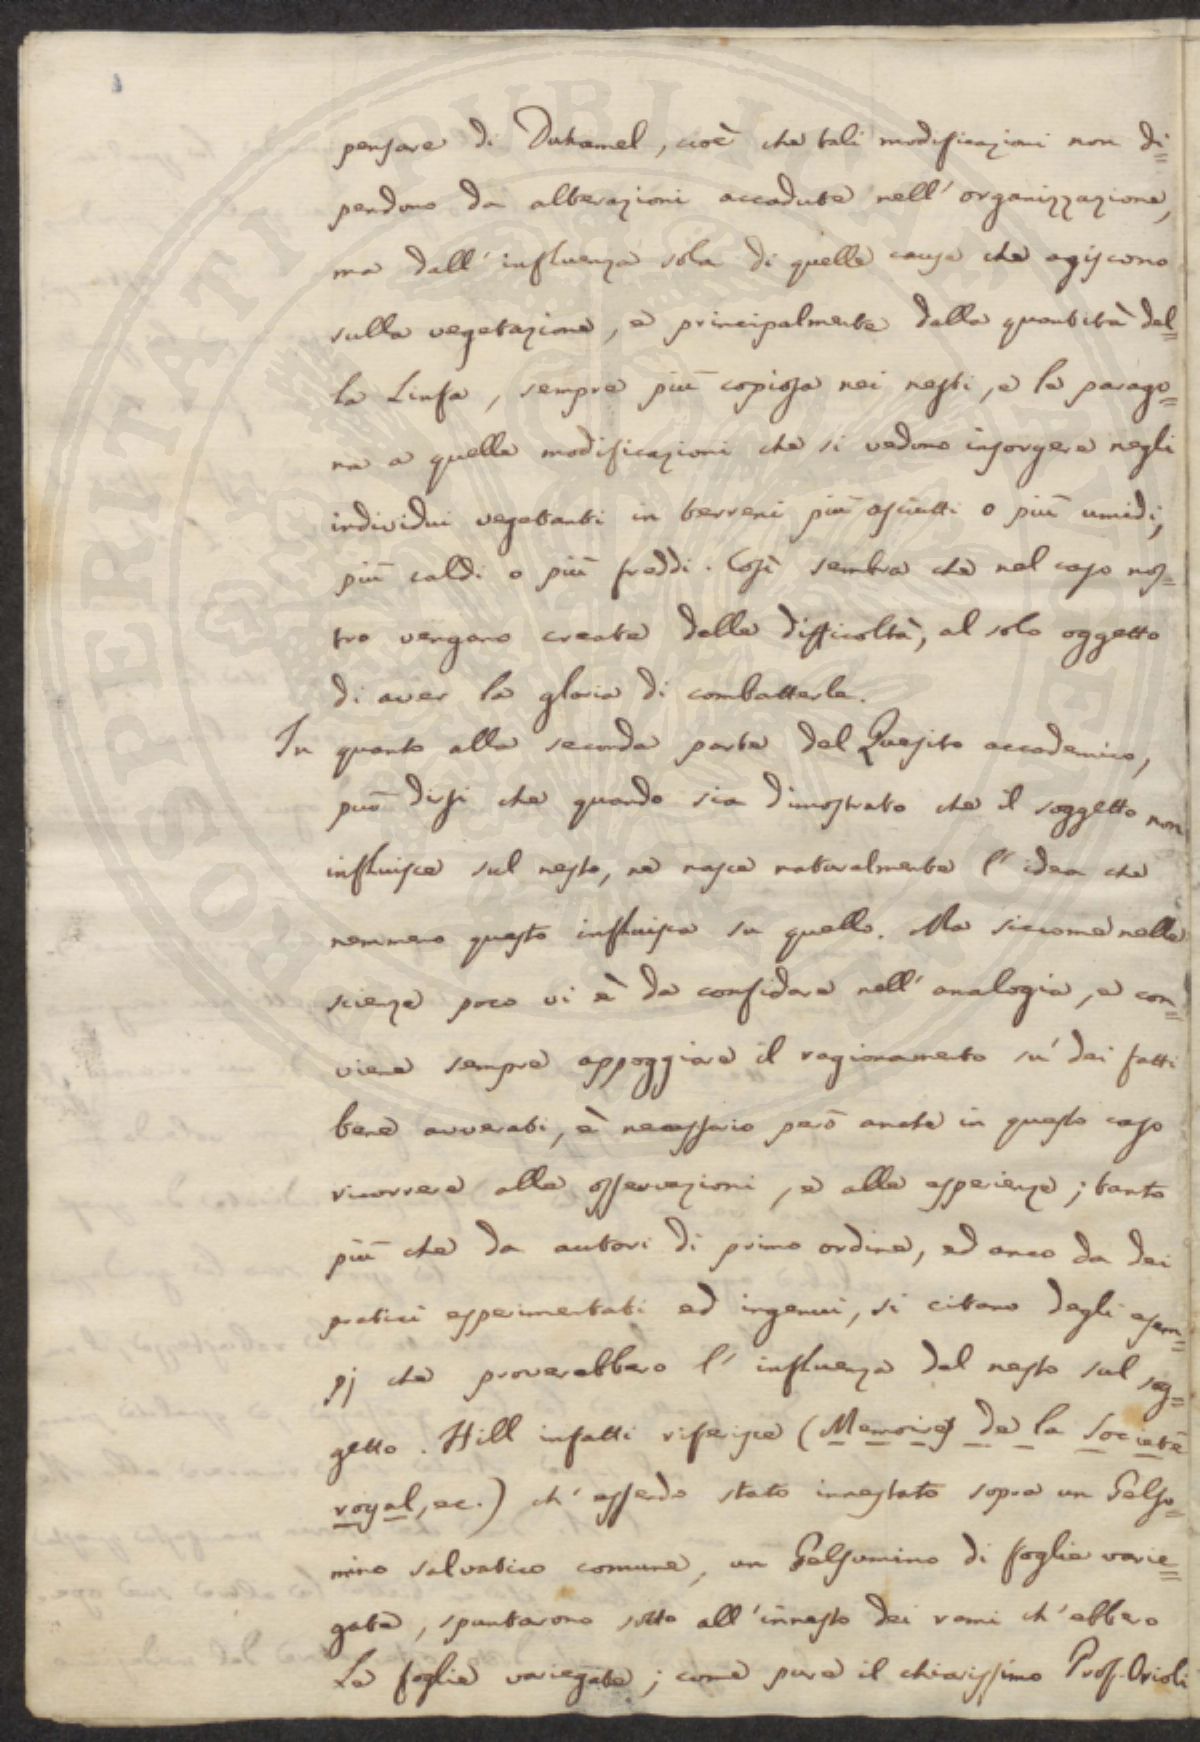 pensare di Duhamel, cioè che tali modificazioni non di=
pendono da alterazioni accadute nell' organizzazione,
ma dall' influenza sola di quelle cause che agiscono
sulla vegetazione, e principalmente dalla quantità del=
la Linfa, sempre più copiosa nei nesti, e la parago=
na a quelle modificazioni che si vedono insorgere negli
individui vegetanti in terreni più asciutti o più umidi,
più caldi o più freddi. Così sembra che nel caso nos=
tro vengano create delle difficoltà, al solo oggetto
di aver la gloria di combatterle.
In quanto alla seconda parte del Quesito accademico,
può dirsi che quando sia dimostrato che il soggetto non
influisce sul nesto, ne nasce naturalmente l' idea che
nemmeno questo influisca su quello. Ma siccome nelle
scienze poco vi è da confidare nell' analogia, e con=
viene sempre appoggiare il ragionamento su' dei fatti
bene avverati, è necessario però anche in questo caso
ricorrere alle osservazioni, e alle esperienze; tanto
più che da autori di primo ordine, ed anco da dei
pratici esperimentati ed ingenui, si citano degli esem=
pj che proverebbero l' influenza del nesto sul sog=
getto. Hill infatti riferisce (Memoires de la Societé
royal, ec.) ch' essendo stato innestato sopra un Gelso=
mino salvatico comune, un Gelsomino di foglie varie=
gate, spuntarono sotto all' innesto dei rami ch' ebbero
le foglie variegate; come pure il chiarissimo Prof. Orioli
POSPERITATI PUBLICAE AUGENDAE